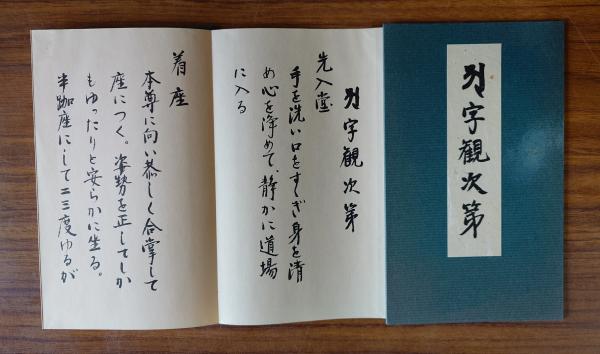 𑖀字観次第
𑖀字観次第
先入堂
手を洗い口をすゝぎ身を清
め心を浄めて、静かに道場
に入る
着座
本尊に向い恭しく合掌して
座につく。姿勢を正してしか
もゆったりと安らかに坐る。
半跏座にして二三度ゆるが